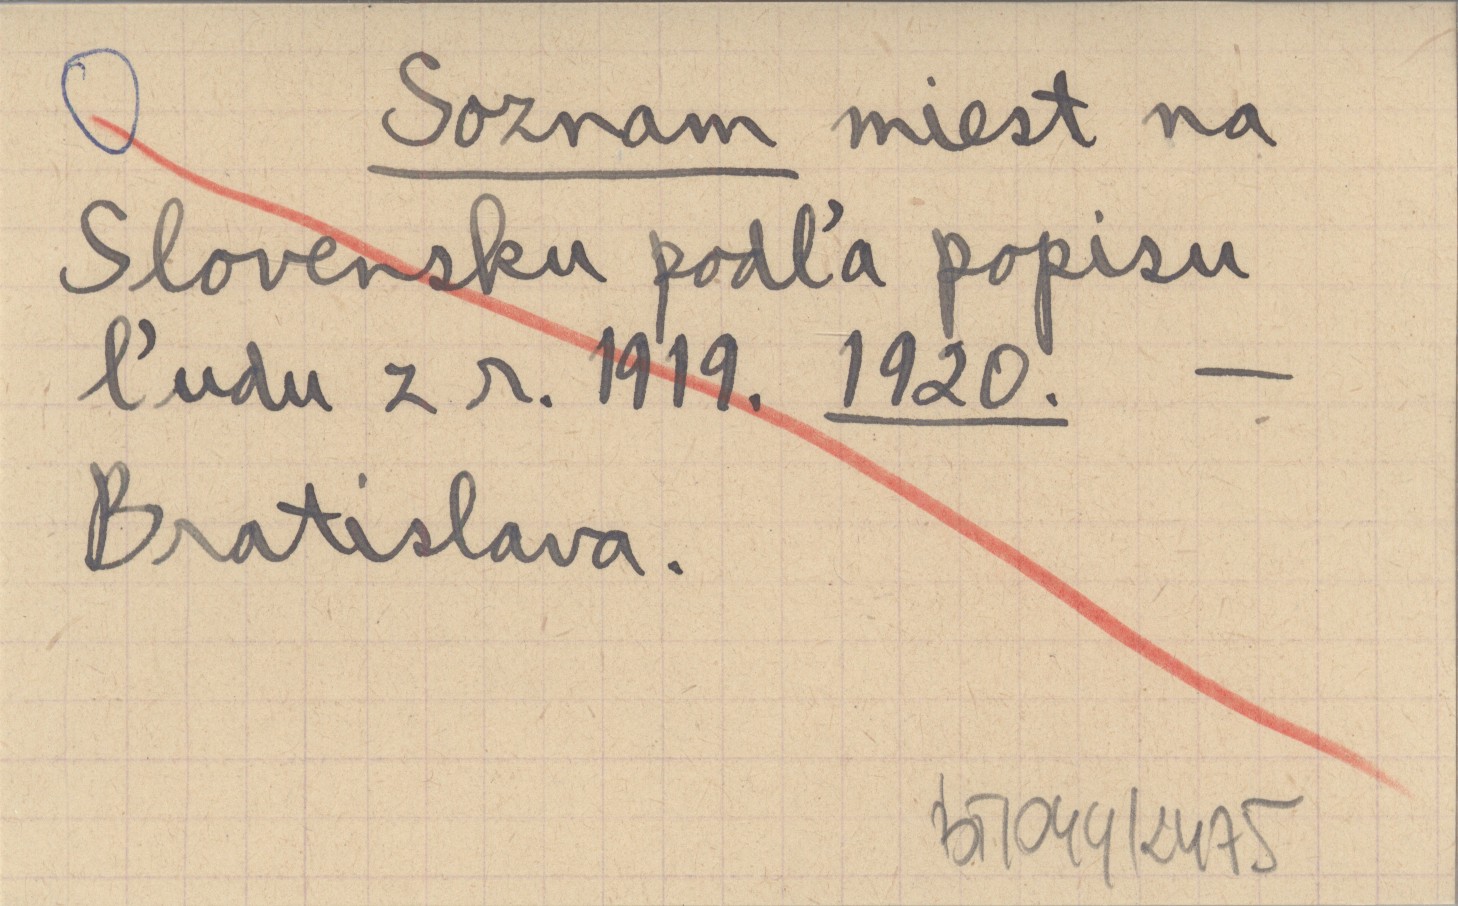 Soznam miest na
Slovensku podľa popisu
ľudu z r. 1919. 1920. —
Bratislava.